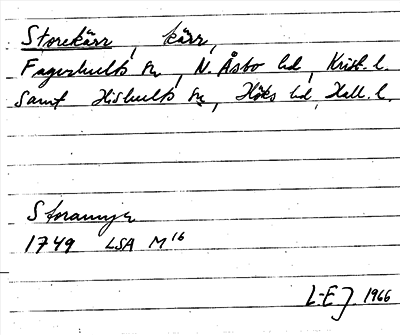 Storekärr, kärr,
Fagerhults sn, N. Åsbo hd, Krist. l.
samt Hishults sn, Höks hd, Hall. l.
Storamyr
1749 LSA M16
L-EJ. 1966